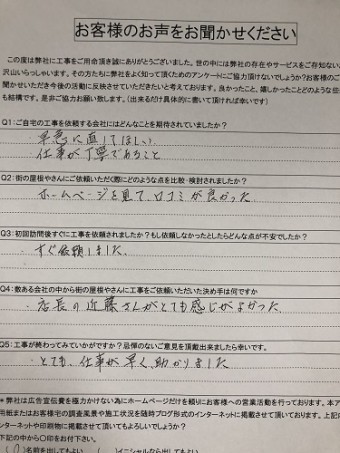 お客様のお声をお聞かせください
この度は弊社に工事をご用命頂き誠にありがとうございました。世の中には弊社の存在やサービスをご存知ない
沢山いらっしゃいます。その方たちに弊社をよく知って頂くためのアンケートにご協力頂けないでしょうか?お客様のご
聞かせいただき今後の活動に反映させていただきたいと考えております。良かったこと、嬉しかったことどのような
も結構です。是非ご協力お願い致します。(出来るだけ具体的に書いて頂ければ幸いです)
Q1:ご自宅の工事を依頼する会社にはどんなことを期待されていましたか?
早急に直してほしい
仕事が丁寧であること
Q2:街の屋根やさんにご依頼いただく際にどのような点を比較・検討されましたか?
ホームページを見て、口コミが良かった。
Q3:初回訪問後すぐに工事を依頼されましたか?もし依頼しなかったとしたらどんな点が不安でしたか?
すぐ依頼しました。
Q4:数ある会社の中から街の屋根やさんに工事をご依頼いただいた決め手は何ですか
店長の近藤さんがとても感じがよかった。
Q5:工事が終わってみていかがですか?忌憚のないご意見を頂戴出来ましたら幸いです。
とても、仕事が早く、助かりました
*弊社は広告宣伝費を極力かけない為にホームページだけを頼りにお客様への営業活動を行っております。本ア
用紙またはお客様宅の調査風景や施工状況を随時ブログ形式のインターネットに掲載させて頂いております。上記
ンターネットや印刷物に掲載させて頂いてもよろしいでしょうか?
下記の中から〇印をお付下さい。
(〇)名前を出してもよい ( )イニシャルなら出してもよい